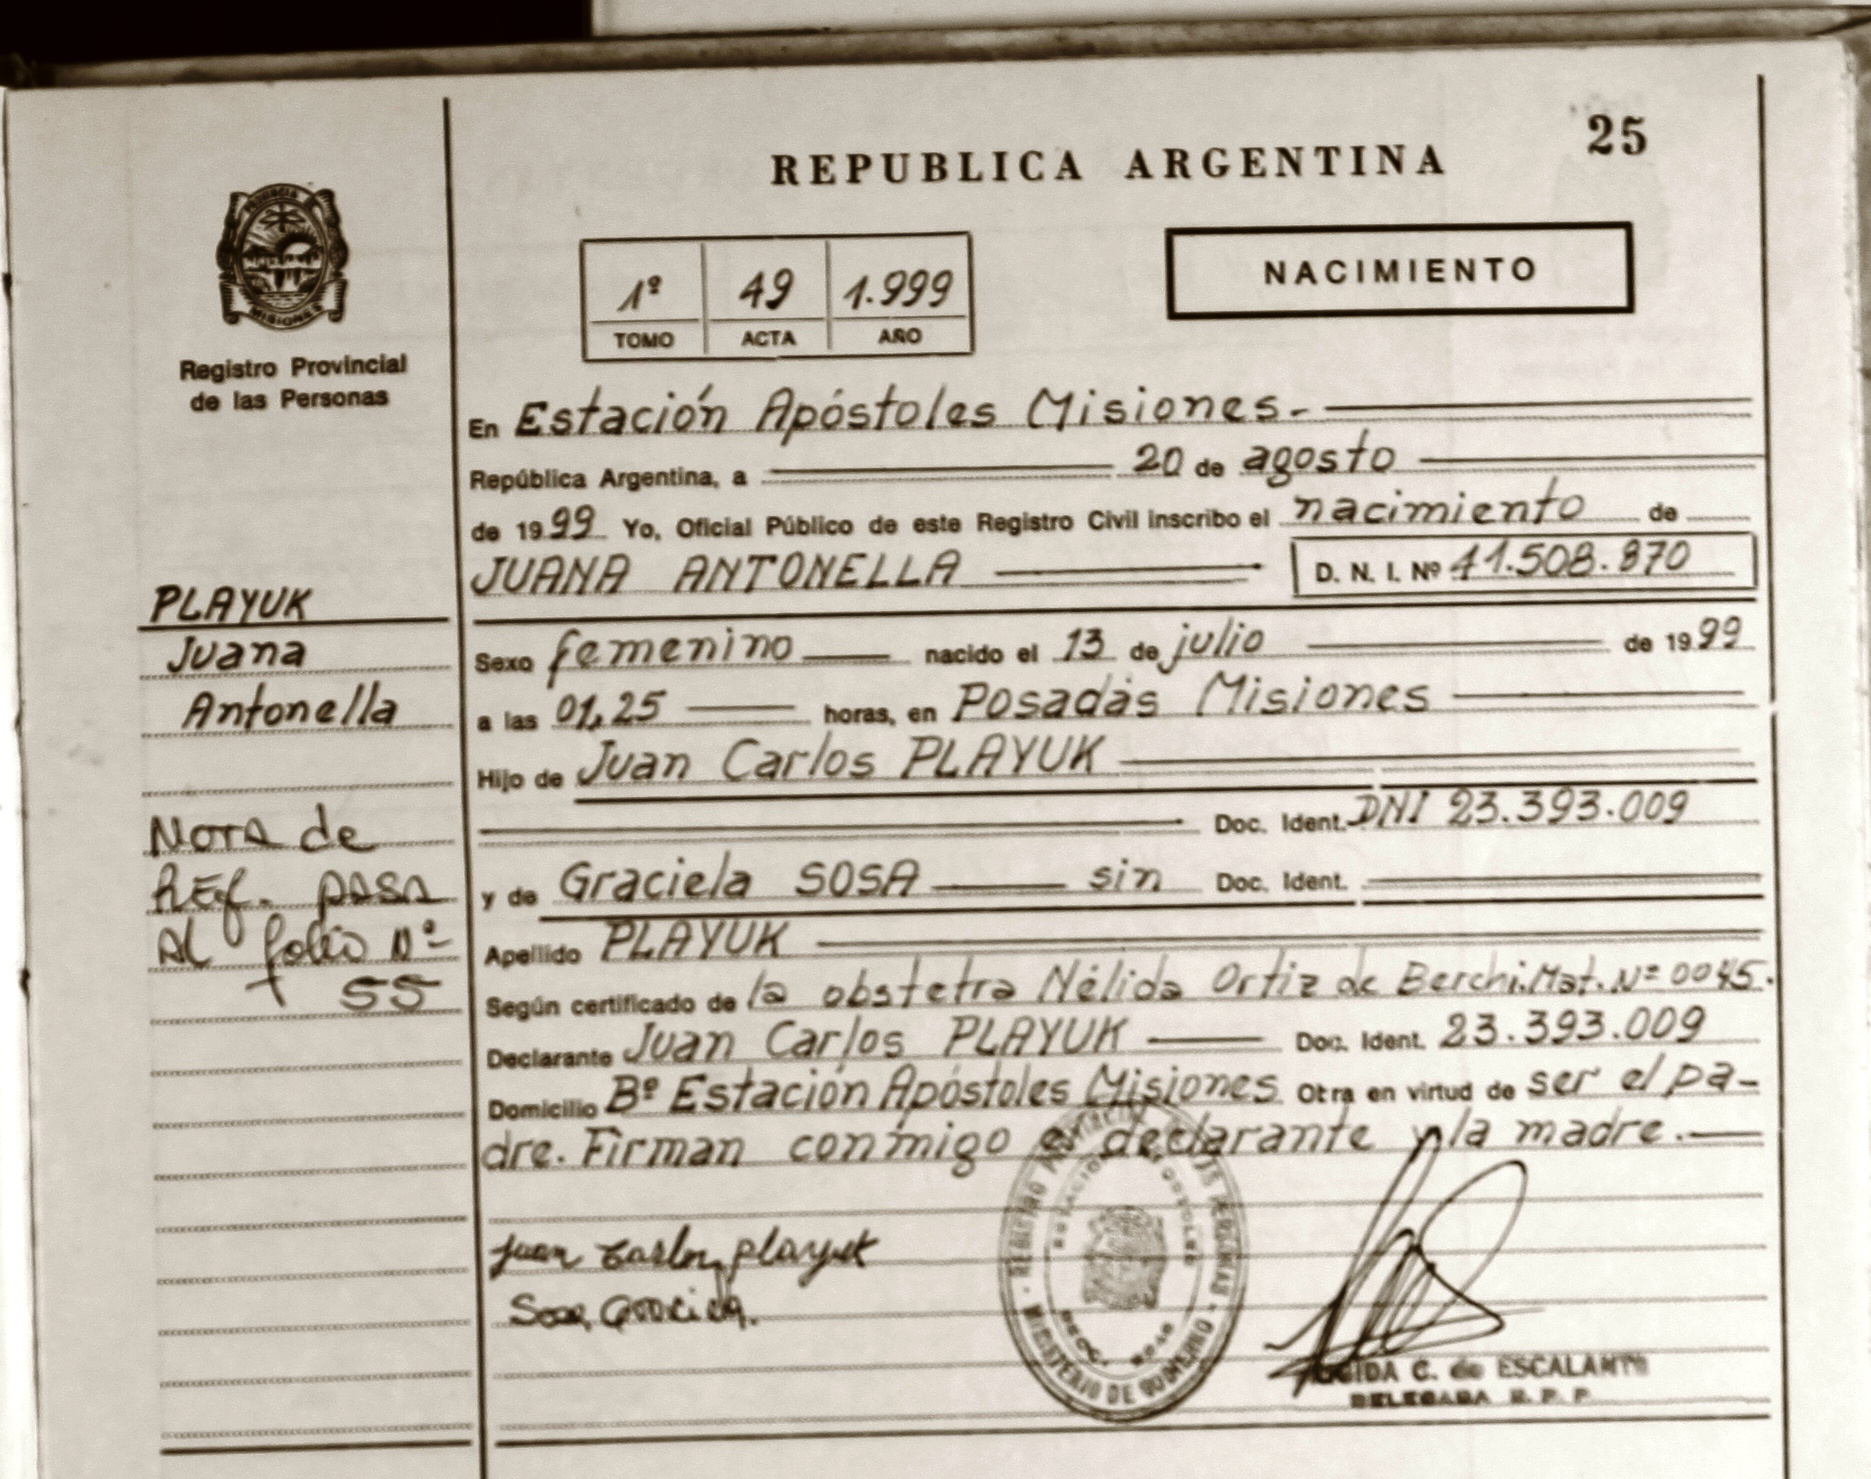 25
REPUBLICA ARGENTINA
NACIMIENTO
1º 49 1.999
TOMO ACTA AÑO
MISIONES
Registro Provincial
de las Personas
En Estación Apóstoles Misiones.-
República Argentina, a 20 de agosto
de 1999 Yo, Oficial Público de este Registro Civil inscribo el nacimiento de
JUANA ANTONELLA D. N. I. Nº 41.508.870
PLAYUK
Juana
Antonella
Sexo femenino nacido el 13 de julio de 1999
a las 01,25 horas, en Posadas Misiones
Hijo de Juan Carlos PLAYUK
Doc. Ident. DNI 23.393.009
y de Graciela SOSA sin Doc. Ident.
Apellido PLAYUK
Según certificado de la obstetra Nélida Ortiz de Berchi.Mat.Nº 0045.
Declarante Juan Carlos PLAYUK Doc. Ident. 23.393.009
Domicilio Bº Estación Apóstoles Misiones Otra en virtud de ser el pa-
dre. Firman conmigo el declarante y la madre.-
Nota de
Ref. pasa
al folio Nº
55
Juan Carlos Playuk
Sosa, Graciela.
MINISTERIO DE GOBIERNO
C. de ESCALANTE
DELEGADA R. P. P.